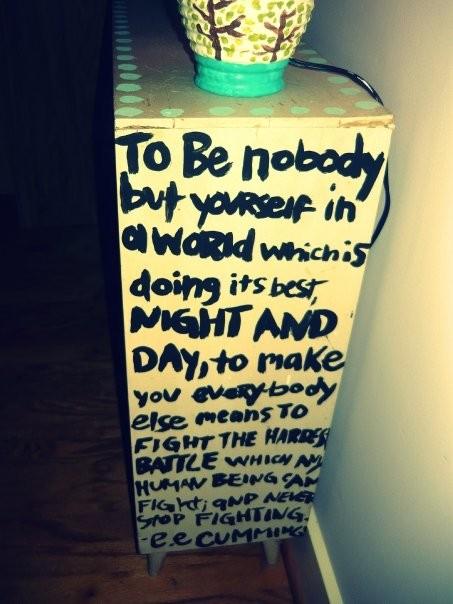 To Be nobody
but yourself in
a WORld which is
doing its best,
NIGHT AND
DAY, to make
you every-body
else means TO
FIGHT THE HARDES
BATTLE WHICH ANY
HUMAN BEING CAN
FIGHT; AND NEVER
STOP FIGHTING.
-e.e CUMMINGS